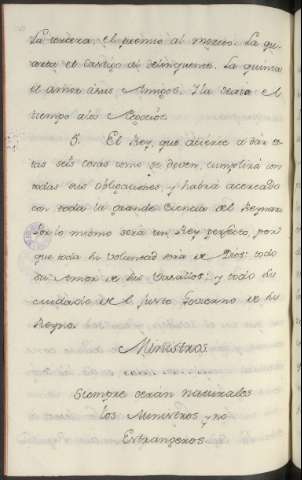 La tercera, el premio al merito. La qu-
arta el castigo al delinquente. La quinta
el amor à sus Amigos. Y la sexta el
tiempo a los Negocios.
5. El Rey, que acierte a dar es-
tas seis cosas como se deven, cumplirá con
todas sus obligaciones, y habrá acertado
con toda la grande Ciencia del Reynar.
Por lo mismo será un Rey perfecto, por
que toda su voluntad será de Dios: todo
su Amor de sus Vasallos: y todo su
cuidado de el justo Govierno de su
Reyno.
Ministros.
Siempre serán naturales
los Ministros, y no
Extrangeros